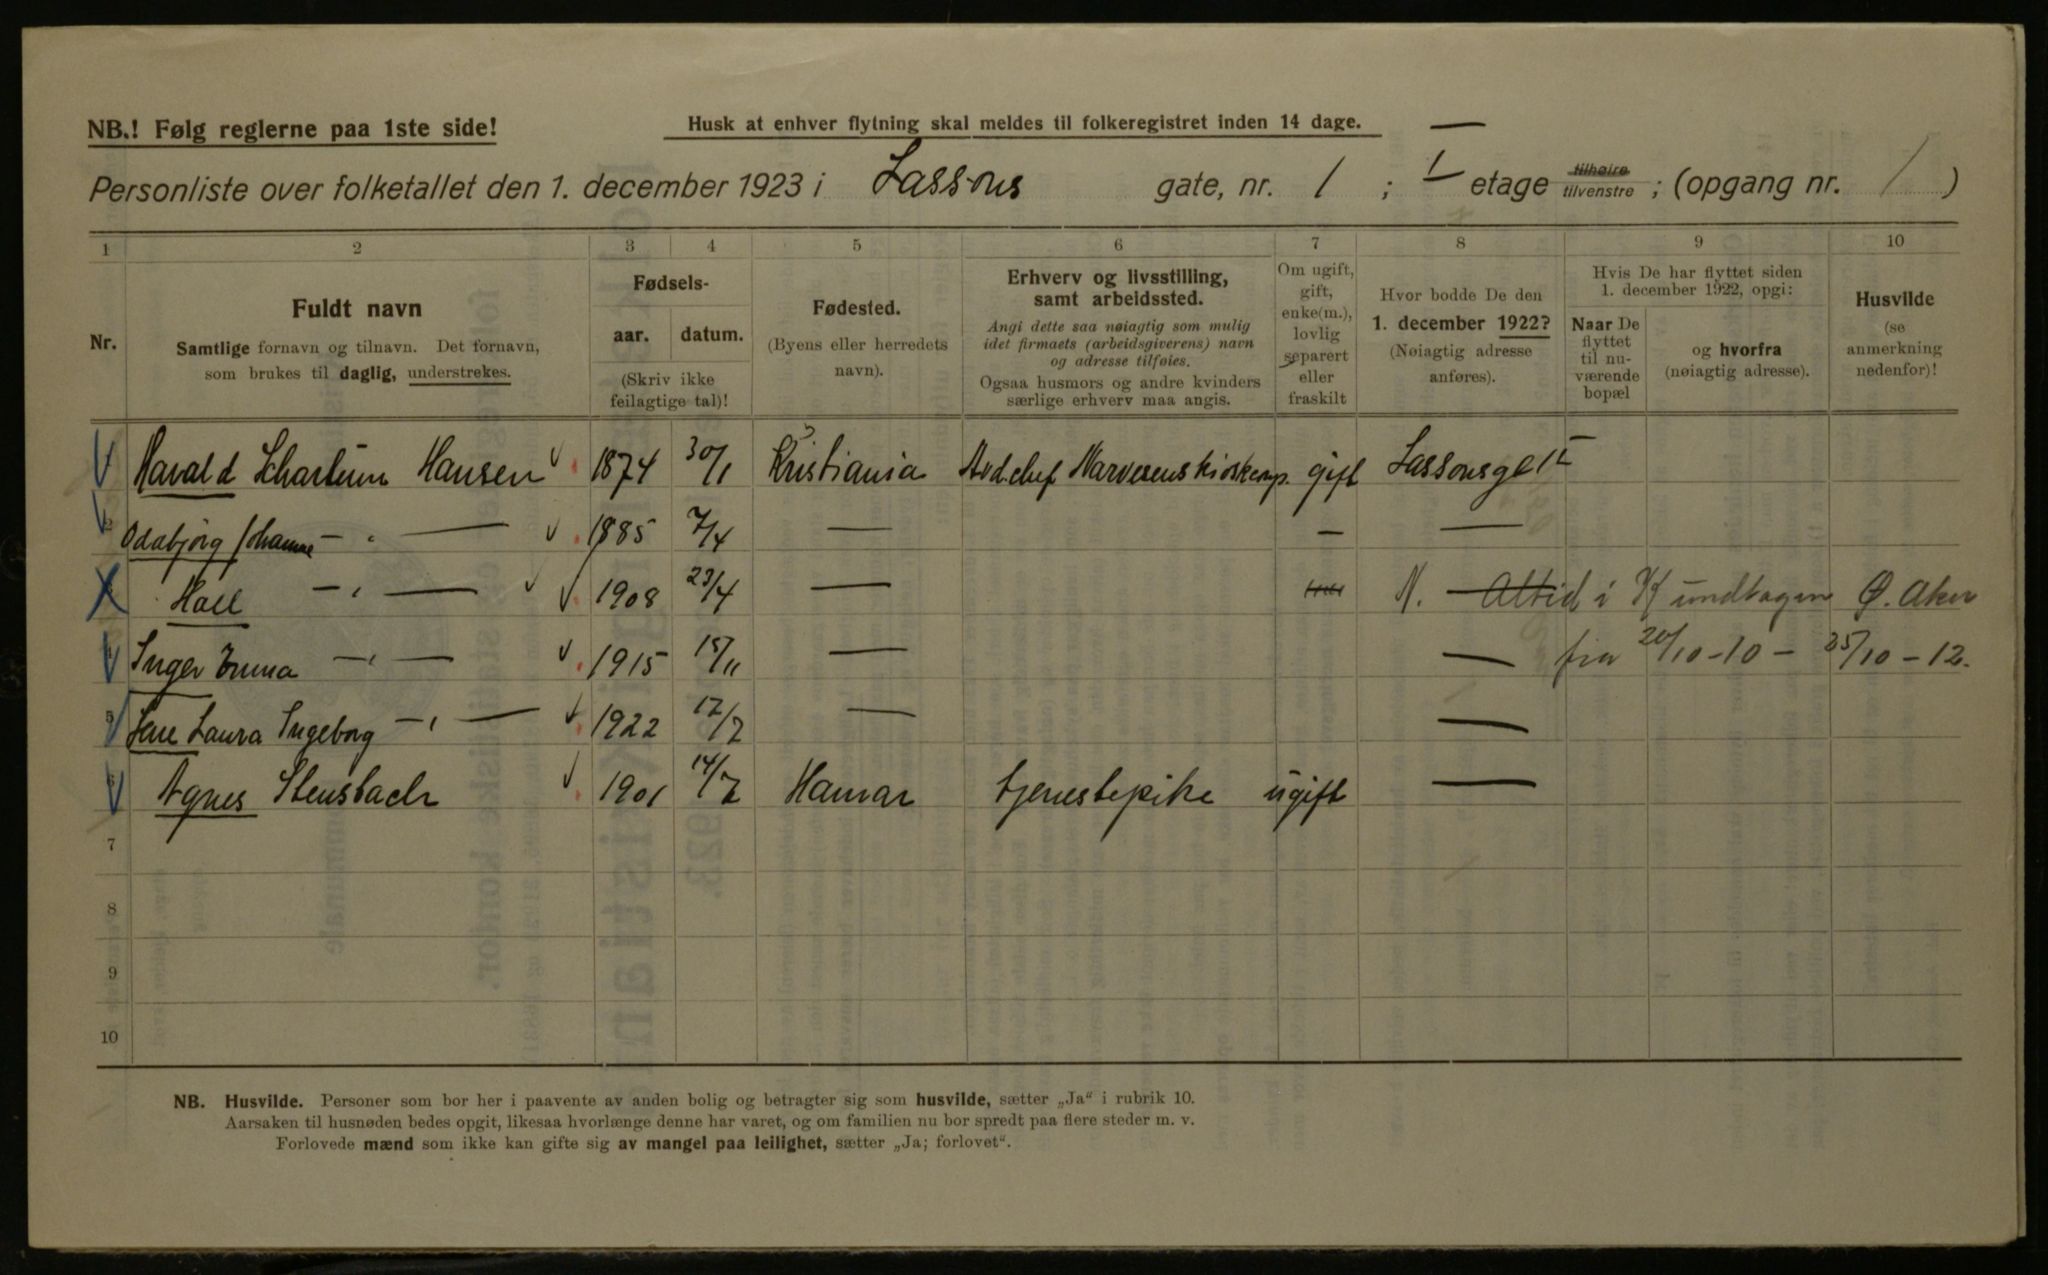 NB.! Følg reglerne paa 1ste side!
Husk at enhver flytning skal meldes til folkeregistret inden 14 dage.
Personliste over folketallet den 1. december 1923 i Lassons gate, nr. 1 ; I etage tilhøire tilvenstre ; (opgang nr. / )
1 2 3 4 5 6 7 8 9 10
Nr.
Fuldt navn
Samtlige fornavn og tilnavn. Det fornavn,
som brukes til daglig, understrekes.
Fødsels-
aar. datum.
(Skriv ikke
feilagtige tal)!
Fødested.
(Byens eller herredets
navn).
Erhverv og livsstilling,
samt arbeidssted.
Angi dette saa nøiagtig som mulig
idet firmaets (arbeidsgiverens) navn
og adresse tilføies.
Ogsaa husmors og andre kvinders
særlige erhverv maa angis.
Om ugift,
gift,
enke(m.),
lovlig
separert
eller
fraskilt
Hvor bodde De den
1. december 1922?
(Nøiagtig adresse
anføres).
Hvis De har flyttet siden
1. december 1922, opgi:
Naar De
flyttet
til nu-
værende
bopæl
og hvorfra
(nøiagtig adresse).
Husvilde
(se
anmerkning
nedenfor)!
Harald Schartum Hansen 1874 30/1 Kristiania Avd.chef Narvesens kioskkomp. gift Lassonsg 1 I
2 Oddbjørg Johanne — " — 1885 7/4 — — —
Hall — " — 1908 23/4 — N. — Altid i Ø. Aker
Inger Emma — " — 1915 15/11 — — fra 20/10-10 – 25/10-12.
5 Laura Ingeborg — " — 1922 17/7 — —
6 Agnes Stensbach 1901 14/7 Hamar tjenestepike ugift —
7
8
9
10
NB. Husvilde. Personer som bor her i paavente av anden bolig og betragter sig som husvilde, sætter „Ja“ i rubrik 10.
Aarsaken til husnøden bedes opgit, likesaa hvorlænge denne har varet, og om familien nu bor spredt paa flere steder m. v.
Forlovede mænd som ikke kan gifte sig av mangel paa leilighet, sætter „Ja; forlovet“.